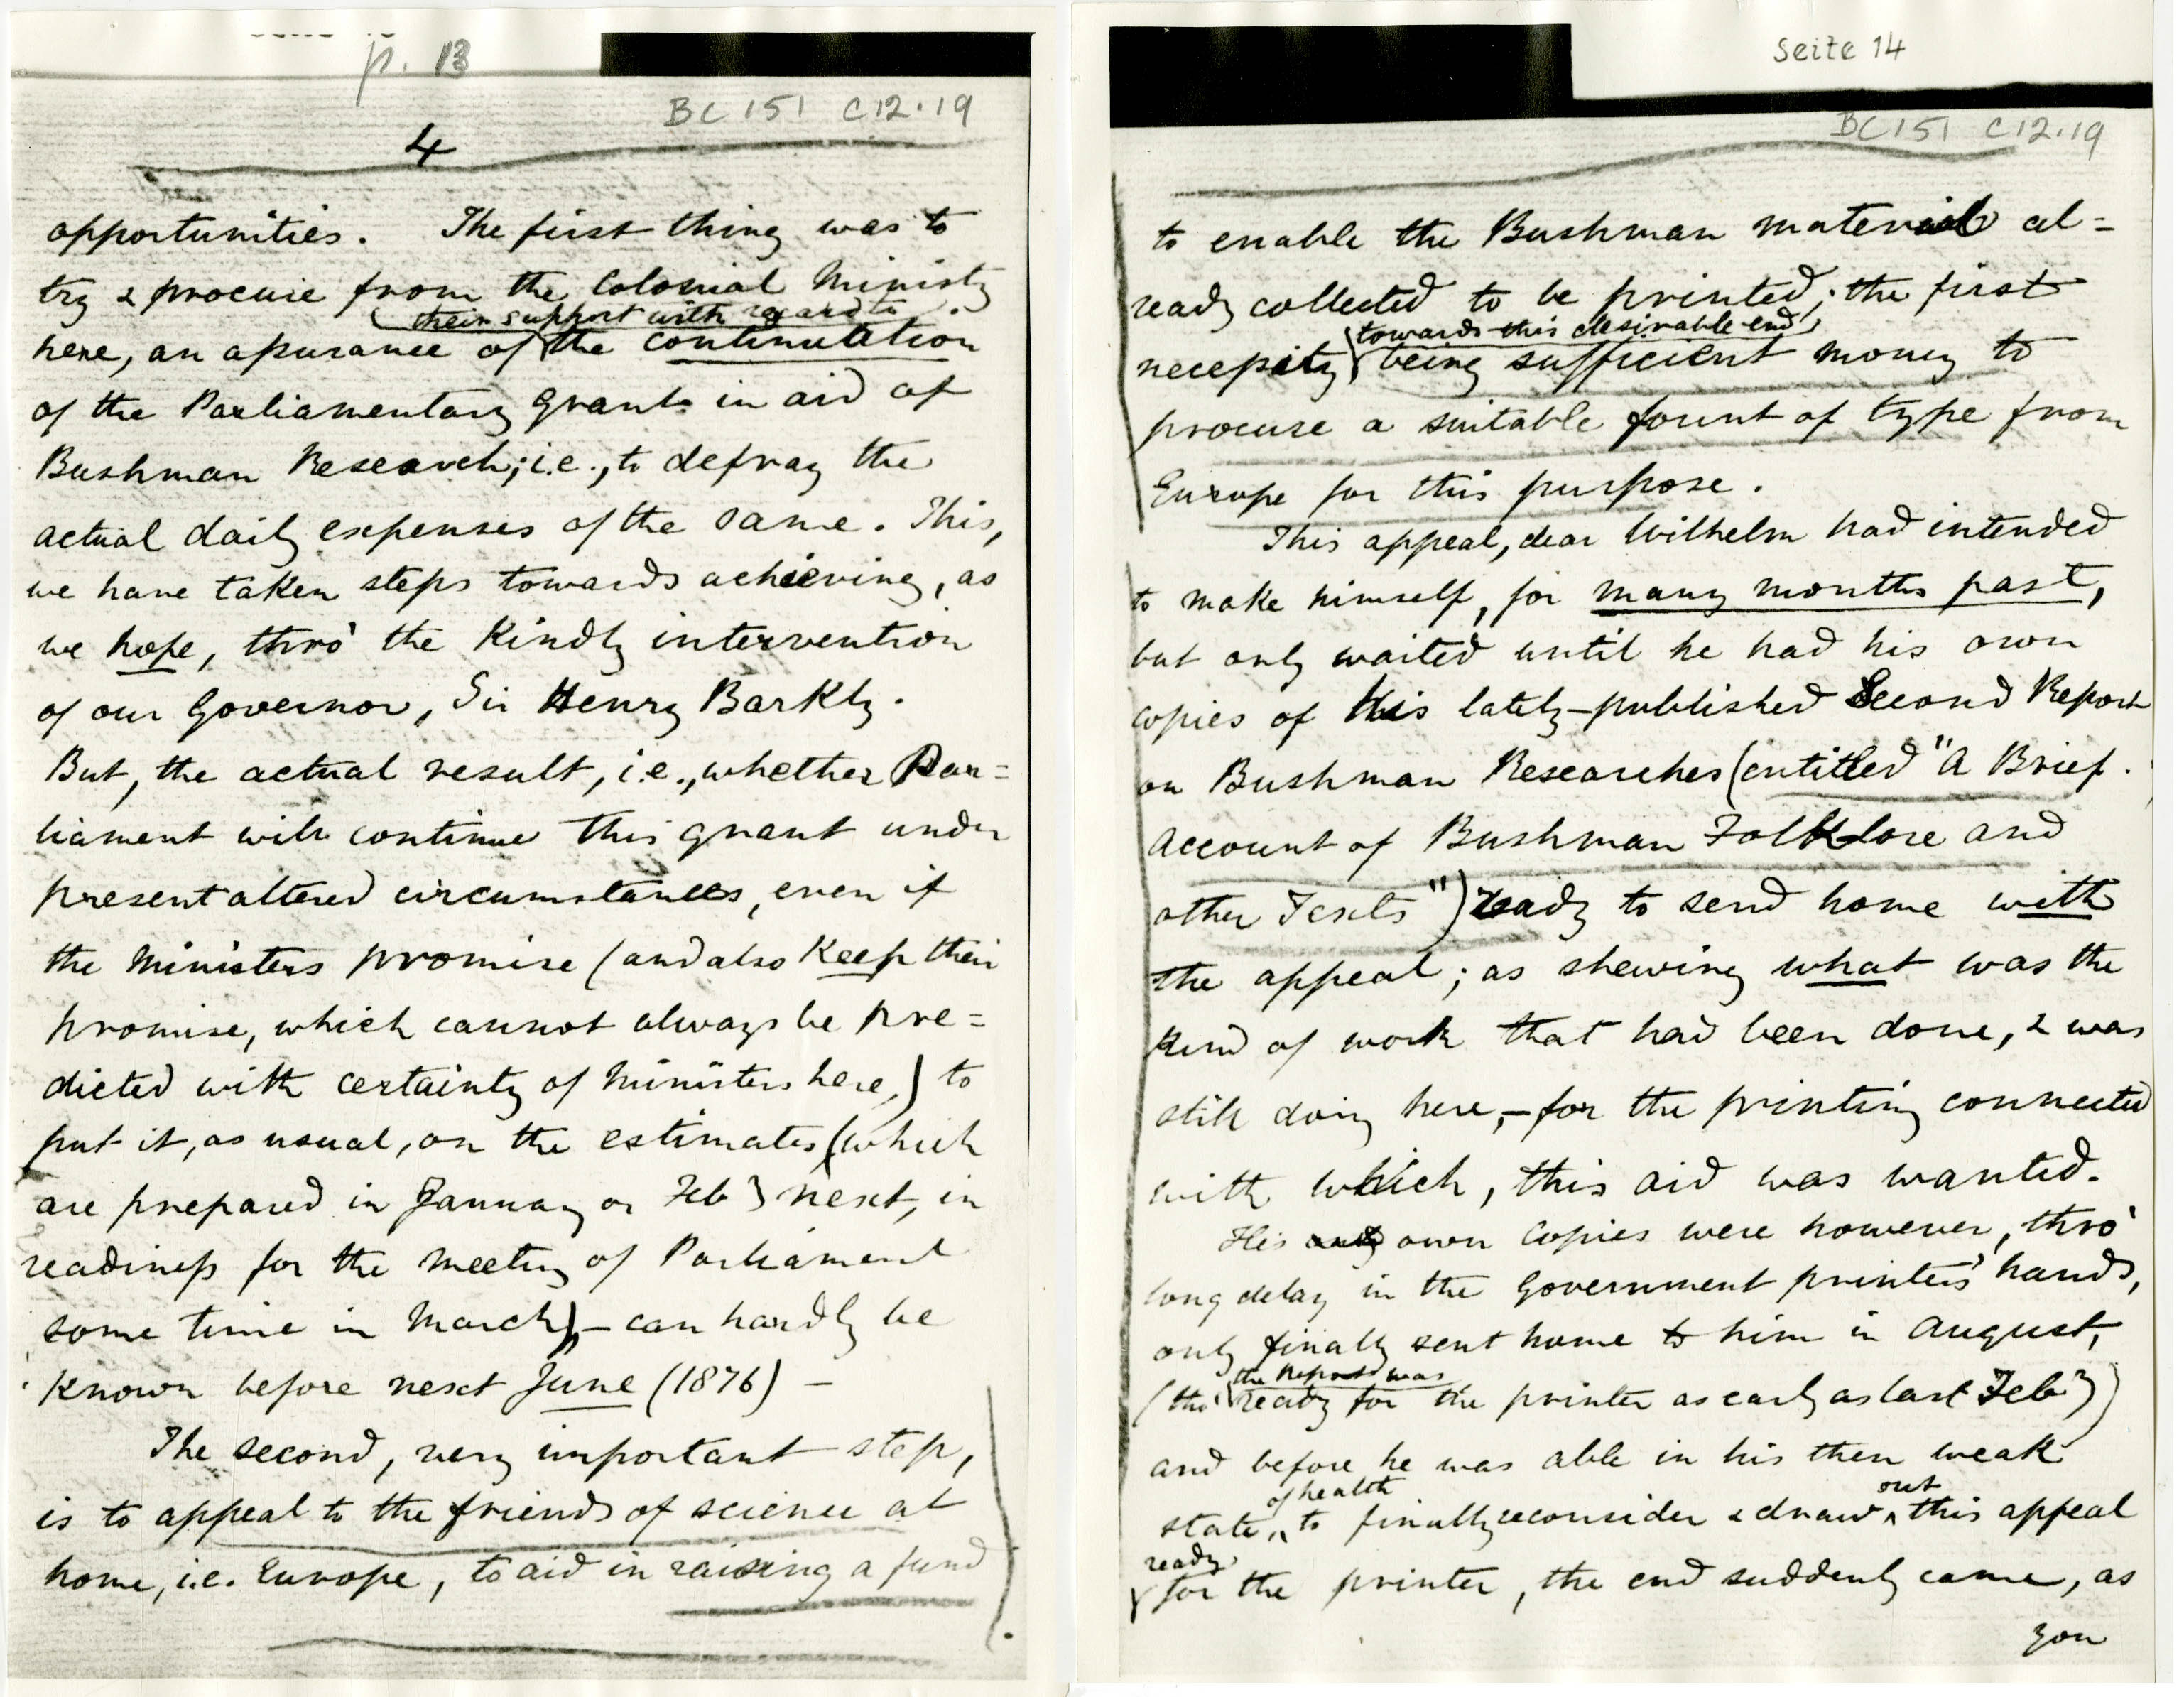 p. 13
BC 151 C12.19
4
opportunities. The first thing was to
try & procure from the Colonial Ministry
their support with regard to
here, an assurance of the continuation
of the Parliamentary Grant in aid of
Bushman Research; i.e., to defray the
actual daily expenses of the same. This,
we have taken steps towards achieving, as
we hope, thro' the kindly intervention
of our Governor, Sir Henry Barkly.
But, the actual result, i.e., whether Par=
liament will continue this grant under
present altered circumstances, even if
the Ministers promise (and also keep their
promise, which cannot always be pre=
dicted with certainty of Ministers here,) to
put it, as usual, on the estimates (which
are prepared in January or Feby next, in
readiness for the meeting of Parliament
some time in March), – can hardly be
known before next June (1876) –
The second, very important step,
is to appeal to the friends of science at
home, i.e. Europe, to aid in raising a fund
Seite 14
BC 151 C12.19
to enable the Bushman material al=
ready collected to be printed; the first
towards this desirable end,
necessity being sufficient money to
procure a suitable fount of type from
Europe for this purpose.
This appeal, dear Wilhelm had intended
to make himself, for many months past,
but only waited until he had his own
copies of his lately-published Second Report
on Bushman Researches (entitled "A Brief
account of Bushman Folklore and
other Texts") ready to send home with
the appeal; as shewing what was the
kind of work that had been done, & was
still doing here, – for the printing connected
with which, this aid was wanted.
His own copies were however, thro'
long delay in the Government printers' hands,
only finally sent home to him in August,
the Report was
(tho' ready for the printer as early as last Feby)
and before he was able in his then weak
of health out
state, to finally reconsider & draw this appeal
ready
for the printer, the end suddenly came, as
you